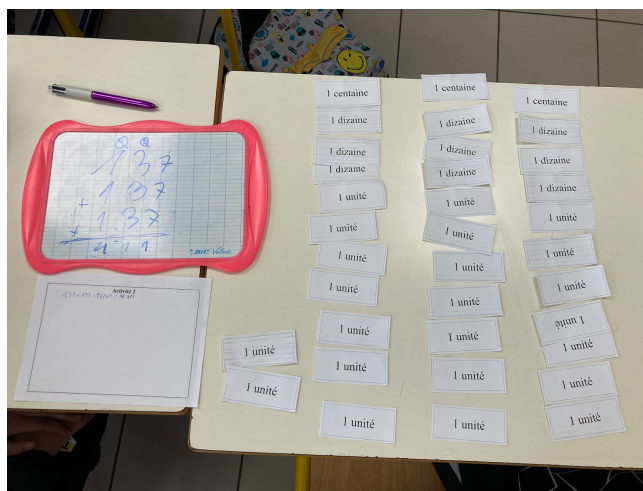 137
+ 137
+ 137
411
Velleda
Activité 2
1 unité
1 unité
1 centaine
1 dizaine
1 dizaine
1 dizaine
1 unité
1 unité
1 unité
1 unité
1 unité
1 unité
1 unité
1 centaine
1 dizaine
1 dizaine
1 dizaine
1 unité
1 unité
1 unité
1 unité
1 unité
1 unité
1 unité
1 centaine
1 dizaine
1 dizaine
1 dizaine
1 unité
1 unité
1 unité
1 unité
1 unité
1 unité
1 unité